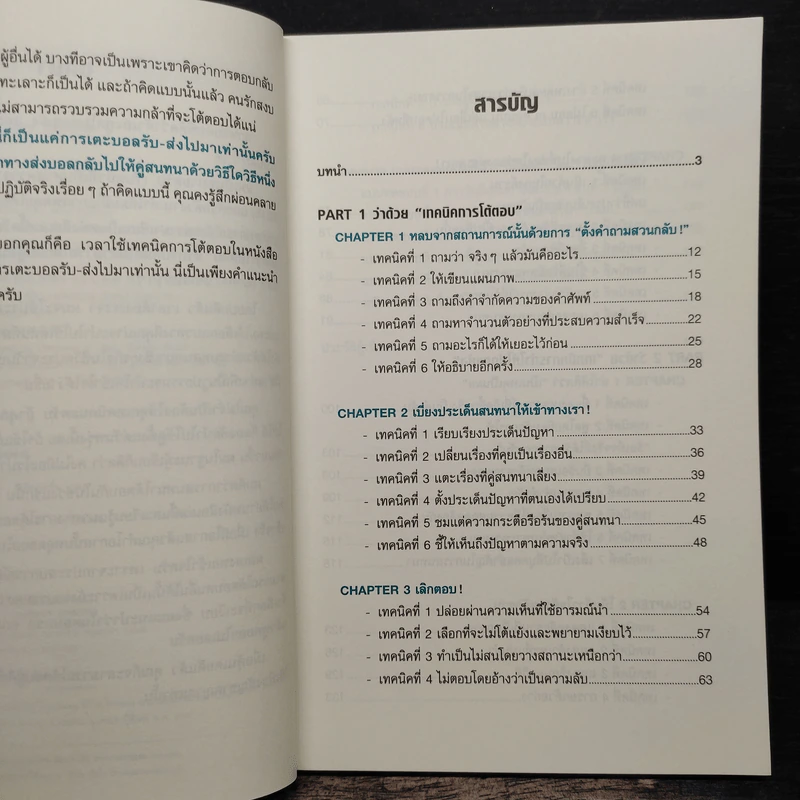 ผู้อื่นได้ บางทีอาจเป็นเพราะเขาคิดว่าการตอบกลับ
ทะเลาะก็เป็นได้ และถ้าคิดแบบนั้นแล้ว คนรักสงบ
ไม่สามารถรวบรวมความกล้าที่จะโต้ตอบได้แน่
ก็เป็นแค่การเตะบอลรับ-ส่งไปมาเท่านั้นครับ
ทางส่งบอลกลับไปให้คู่สนทนาด้วยวิธีใดวิธีหนึ่ง
ปฏิบัติจริงเรื่อย ๆ ถ้าคิดแบบนี้ คุณคงรู้สึกผ่อนคลาย
บอกคุณก็คือ เวลาใช้เทคนิคการโต้ตอบในหนังสือ
การเตะบอลรับ-ส่งไปมาเท่านั้น นี่เป็นเพียงคำแนะนำ
ครับ
สารบัญ
บทนำ 3
PART 1 ว่าด้วย "เทคนิคการโต้ตอบ"
CHAPTER 1 หลบจากสถานการณ์นั้นด้วยการ "ตั้งคำถามสวนกลับ!"
- เทคนิคที่ 1 ถามว่า จริงๆ แล้วมันคืออะไร 12
- เทคนิคที่ 2 ให้เขียนแผนภาพ 15
- เทคนิคที่ 3 ถามถึงคำจำกัดความของคำศัพท์ 18
- เทคนิคที่ 4 ถามหาจำนวนตัวอย่างที่ประสบความสำเร็จ 22
- เทคนิคที่ 5 ถามอะไรก็ได้ให้เยอะไว้ก่อน 25
- เทคนิคที่ 6 ให้อธิบายอีกครั้ง 28
CHAPTER 2 เบี่ยงประเด็นสนทนาให้เข้าทางเรา!
- เทคนิคที่ 1 เรียบเรียงประเด็นปัญหา 33
- เทคนิคที่ 2 เปลี่ยนเรื่องที่คุยเป็นเรื่องอื่น 36
- เทคนิคที่ 3 แตะเรื่องที่คู่สนทนาเลี่ยง 39
- เทคนิคที่ 4 ตั้งประเด็นปัญหาที่ตนเองได้เปรียบ 42
- เทคนิคที่ 5 ชมแต่ความกระตือรือร้นของคู่สนทนา 45
- เทคนิคที่ 6 ชี้ให้เห็นถึงปัญหาตามความจริง 48
CHAPTER 3 เลิกตอบ!
- เทคนิคที่ 1 ปล่อยผ่านความเห็นที่ใช้อารมณ์นำ 54
- เทคนิคที่ 2 เลือกที่จะไม่โต้แย้งและพยายามเงียบไว้ 57
- เทคนิคที่ 3 ทำเป็นไม่สนโดยวางสถานะเหนือกว่า 60
- เทคนิคที่ 4 ไม่ตอบโดยอ้างว่าเป็นความลับ 63